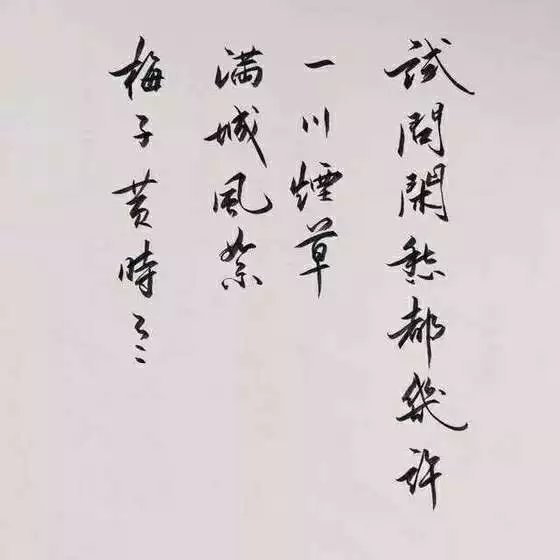 試問閑愁都幾許
一川煙草
满城風絮
梅子黄時雨